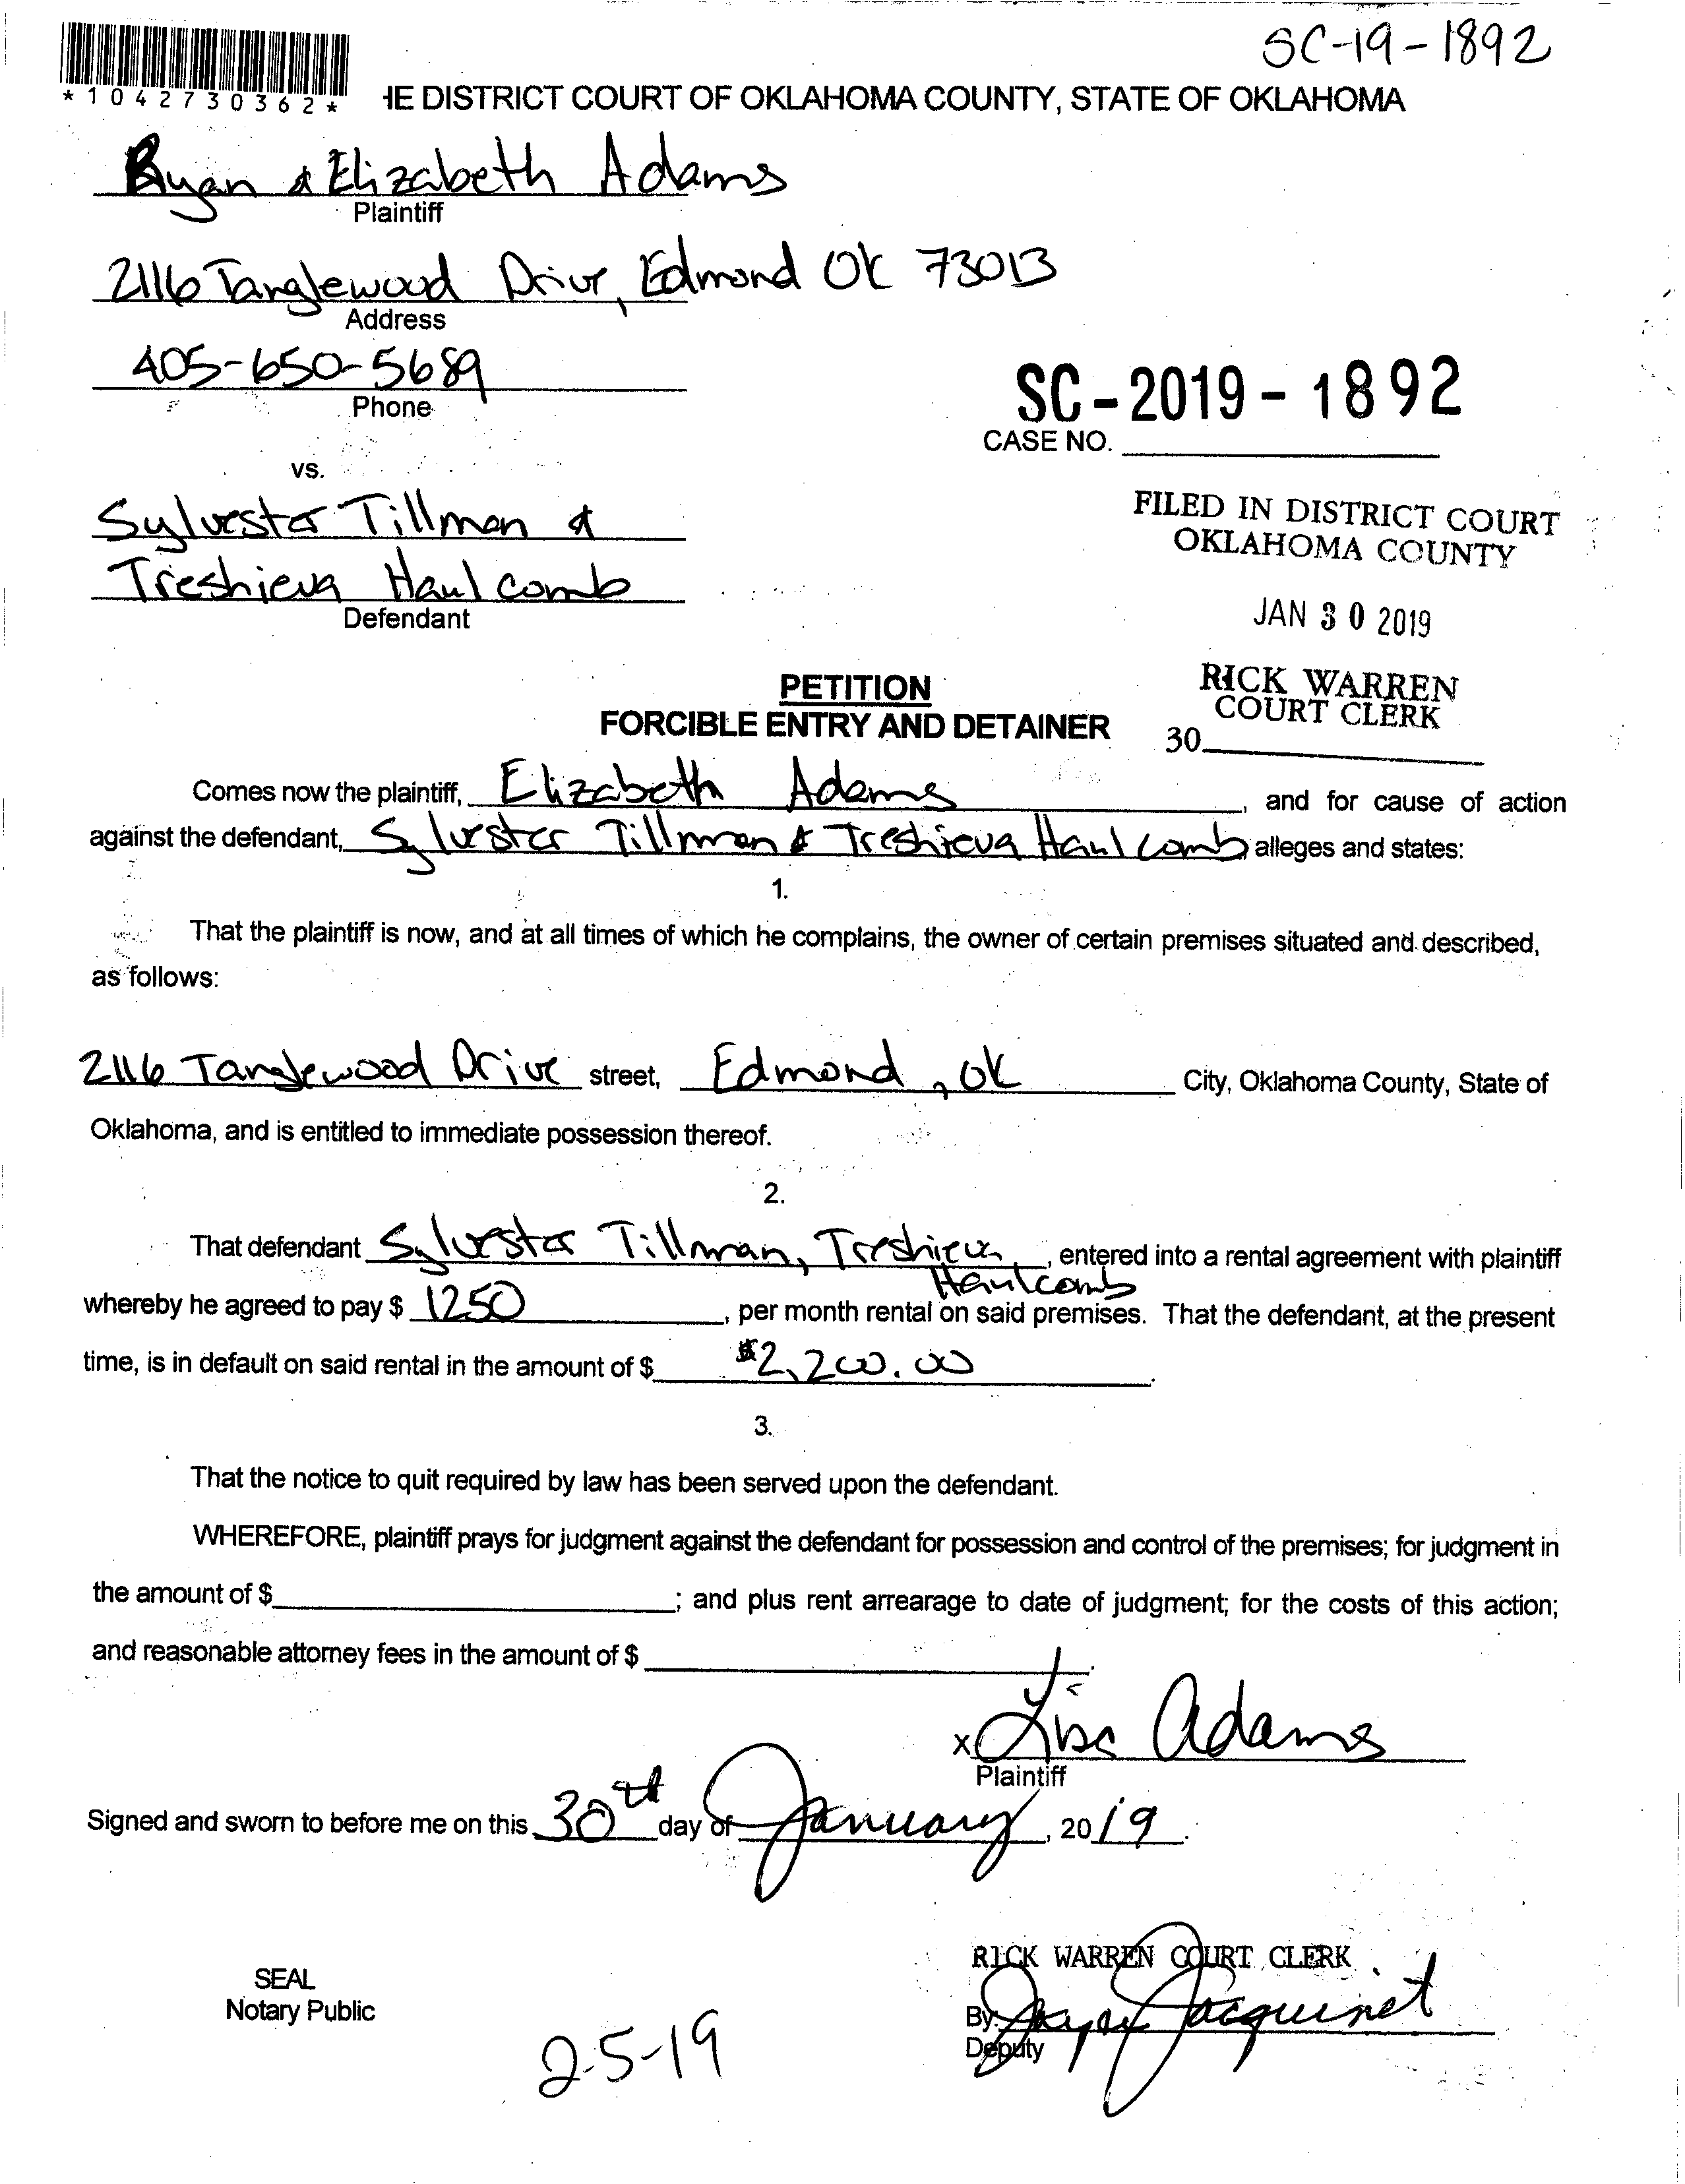 SC-19-1892
*1042730362*
IE DISTRICT COURT OF OKLAHOMA COUNTY, STATE OF OKLAHOMA
Ryan & Elizabeth Adams
Plaintiff
2116 Tanglewood Drive, Edmond OK 73013
Address
405-650-5689
Phone
SC-2019-1892
CASE NO.
vs.
Sylvester Tillman &
Treshieva Haulcomb
Defendant
FILED IN DISTRICT COURT
OKLAHOMA COUNTY
JAN 30 2019
RICK WARREN
COURT CLERK
30
PETITION
FORCIBLE ENTRY AND DETAINER
Comes now the plaintiff, Elizabeth Adams, and for cause of action
against the defendant, Sylvester Tillman & Treshieva Haulcomb alleges and states:
1.
That the plaintiff is now, and at all times of which he complains, the owner of certain premises situated and described,
as follows:
2116 Tanglewood Drive street, Edmond, OK City, Oklahoma County, State of
Oklahoma, and is entitled to immediate possession thereof.
2.
That defendant Sylvester Tillman, Treshieva, entered into a rental agreement with plaintiff
Haulcomb
whereby he agreed to pay $ 1250, per month rental on said premises. That the defendant, at the present
time, is in default on said rental in the amount of $ $2,200.00.
3.
That the notice to quit required by law has been served upon the defendant.
WHEREFORE, plaintiff prays for judgment against the defendant for possession and control of the premises; for judgment in
the amount of $ ; and plus rent arrearage to date of judgment; for the costs of this action;
and reasonable attorney fees in the amount of $ .
x Lisa Adams
Plaintiff
Signed and sworn to before me on this 30th day of January, 2019.
RICK WARREN COURT CLERK
SEAL
Notary Public
By: Jacquinet
Deputy
2-5-19